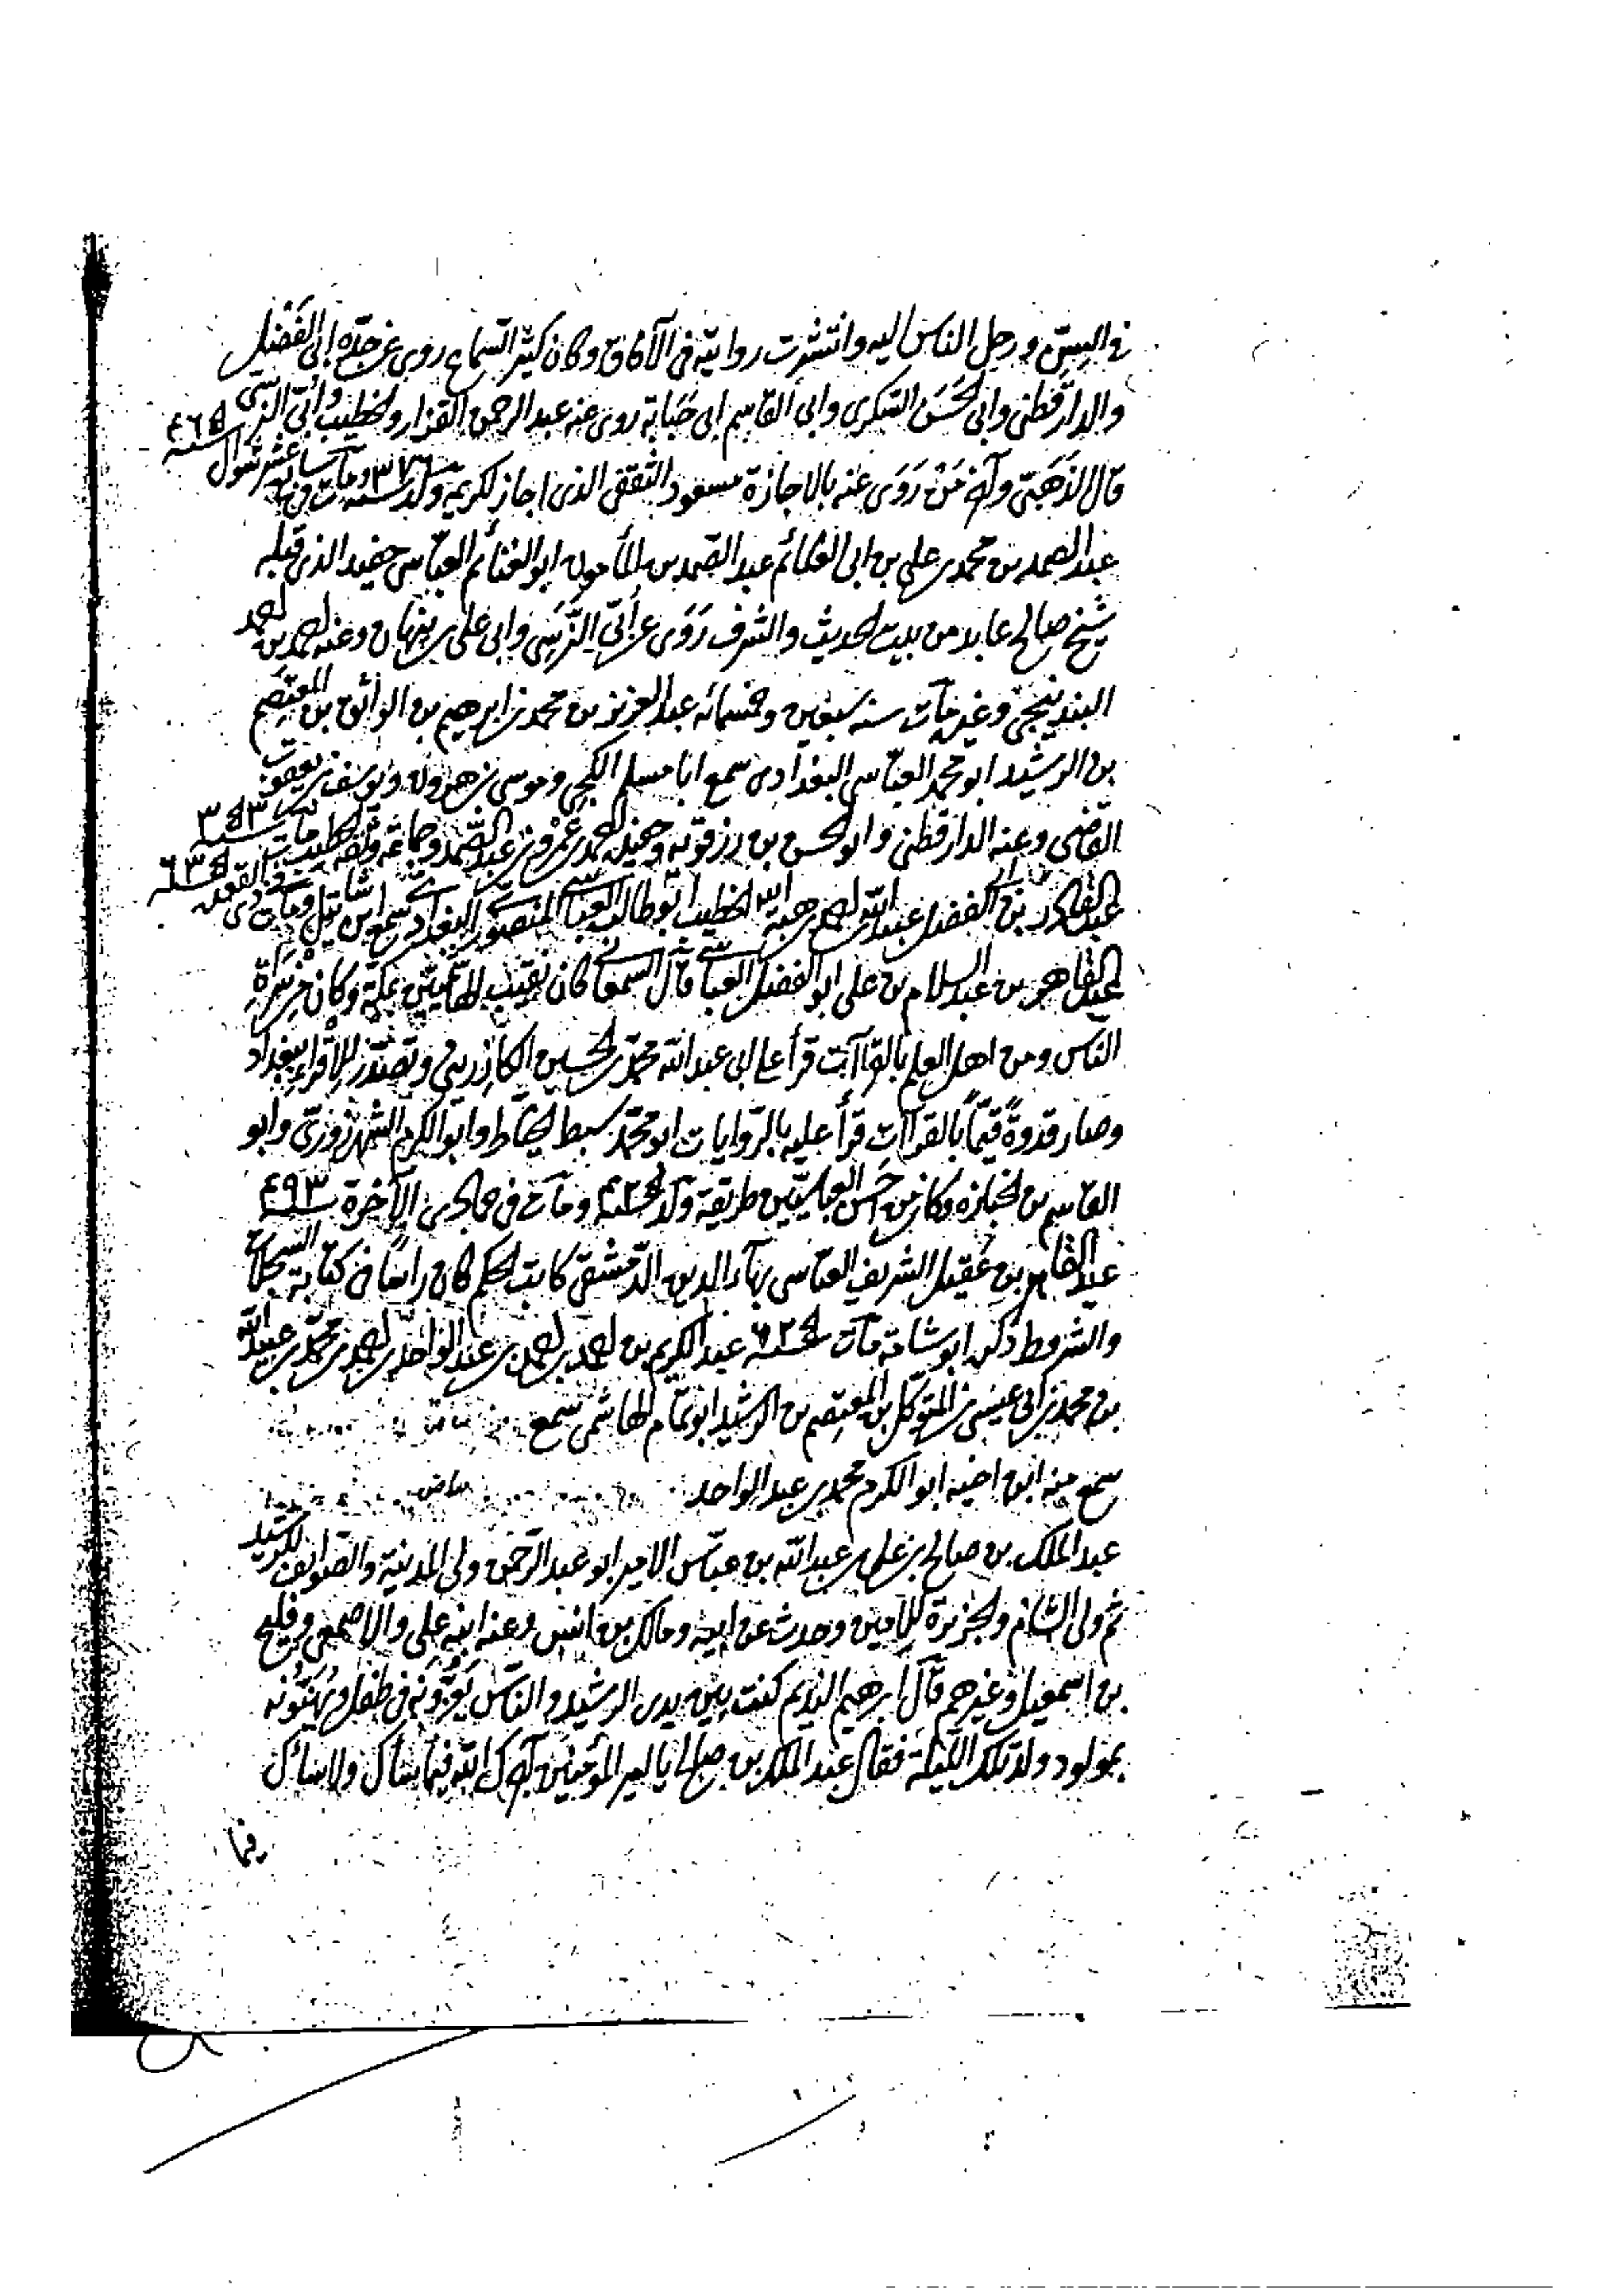 في السن ورحل الناس اليه وانتشرت روايته في الآفاق وكان كثير السماع روى عن جده ابى الفضل
والدارقطني وابى الحسن السكرى وابى القاسم ابى حبابة روى عنه عبد الرحمن القزاز والخطيب وأبي النرسي
قال الذهبي وآخر من روى عنه بالاجازة مسعود الثقفى الذى اجاز لكريمة ولد سنة ٣٧٦ ومات سابع عشر شوال سنة ٤٦٥
عبد الصمد بن محمد بن على بن ابى الغنائم عبد الصمد بن المأمون ابو الغنائم العباسى حفيد الذى قبله
شيخ صالح عابد من بيت الحديث والشرف روى عن أبي النرسي وابى على بن نبهان وعنه احمد بن احمد
البندنيجي وغيره مات سنه سبعين وخمسمائه عبد العزيز بن محمد بن ابرهيم بن الواثق بن المعتصم
بن الرشيد ابو محمد العباسى البغدادى سمع ابا مسلم الكجي وموسى بن هرون ويوسف بن يعقوب
القاضى وعنه الدارقطنى وابو الحسن بن رزقويه وحفيده احمد بن عمر بن عبد الصمد وجماعة وثقه الخطيب مات سنة ٣٥٣
عبد القادر بن الفضل عبد الله بن احمد بن هبة الله الخطيب ابو طالب العباسي المنصوري البغدادي سمع ابن شاتيل ومات في ذى القعدة سنة ٦٣٥
عبد القاهر بن عبد السلام بن على ابو الفضل العباسي قال السمعاني كان نقيب الهاشميين بمكة وكان من سراة
الناس ومن اهل العلم بالقراآت قرأ على ابى عبد الله محمد بن الحسين الكازريني وتصدر للاقراء ببغداد
وصار قدوة قيماً بالقراآت قرأ عليه بالروايات ابو محمد سبط الخياط وابو الكرم الشهرزوري وابو
القاسم بن الخبازه وكان من احسن العباسيين طريقة ولد سنة ٤٢٥ ومات في جمادى الآخرة سنة ٤٩٣
عبد القاهر بن عقيل الشريف العباسى بهاء الدين الدمشقى كاتب الحكم كان رأسا فى كتابة السجلات
والشروط ذكره ابو شامة مات سنة ٦٢٥ عبد الكريم بن احمد بن احمد بن عبد الواحد بن احمد بن محمد بن عبيد الله
بن محمد بن ابى عيسى بن المتوكل بن المعتصم بن الرشيد ابو تمام الهاشمى سمع بياض
سمع منه ابن اخيه ابو الكرم محمد بن عبد الواحد بياض
عبد الملك بن صالح بن على بن عبد الله بن عباس الامير ابو عبد الرحمن ولى المدينة والصوايف للرشيد
ثم ولى الشام والجزيرة للامين وحدث عن ابيه ومالك بن انس وعنه ابنه على والاصمعى وفليح
بن اسمعيل وغيرهم قال ابرهيم النديم كنت بين يدى الرشيد والناس يعزونه فى طفل ويهنئونه
بمولود ولد تلك الليلة فقال عبد الملك بن صالح يا امير المؤمنين آجرك الله فيما ساءك ولا ساءك
فيما